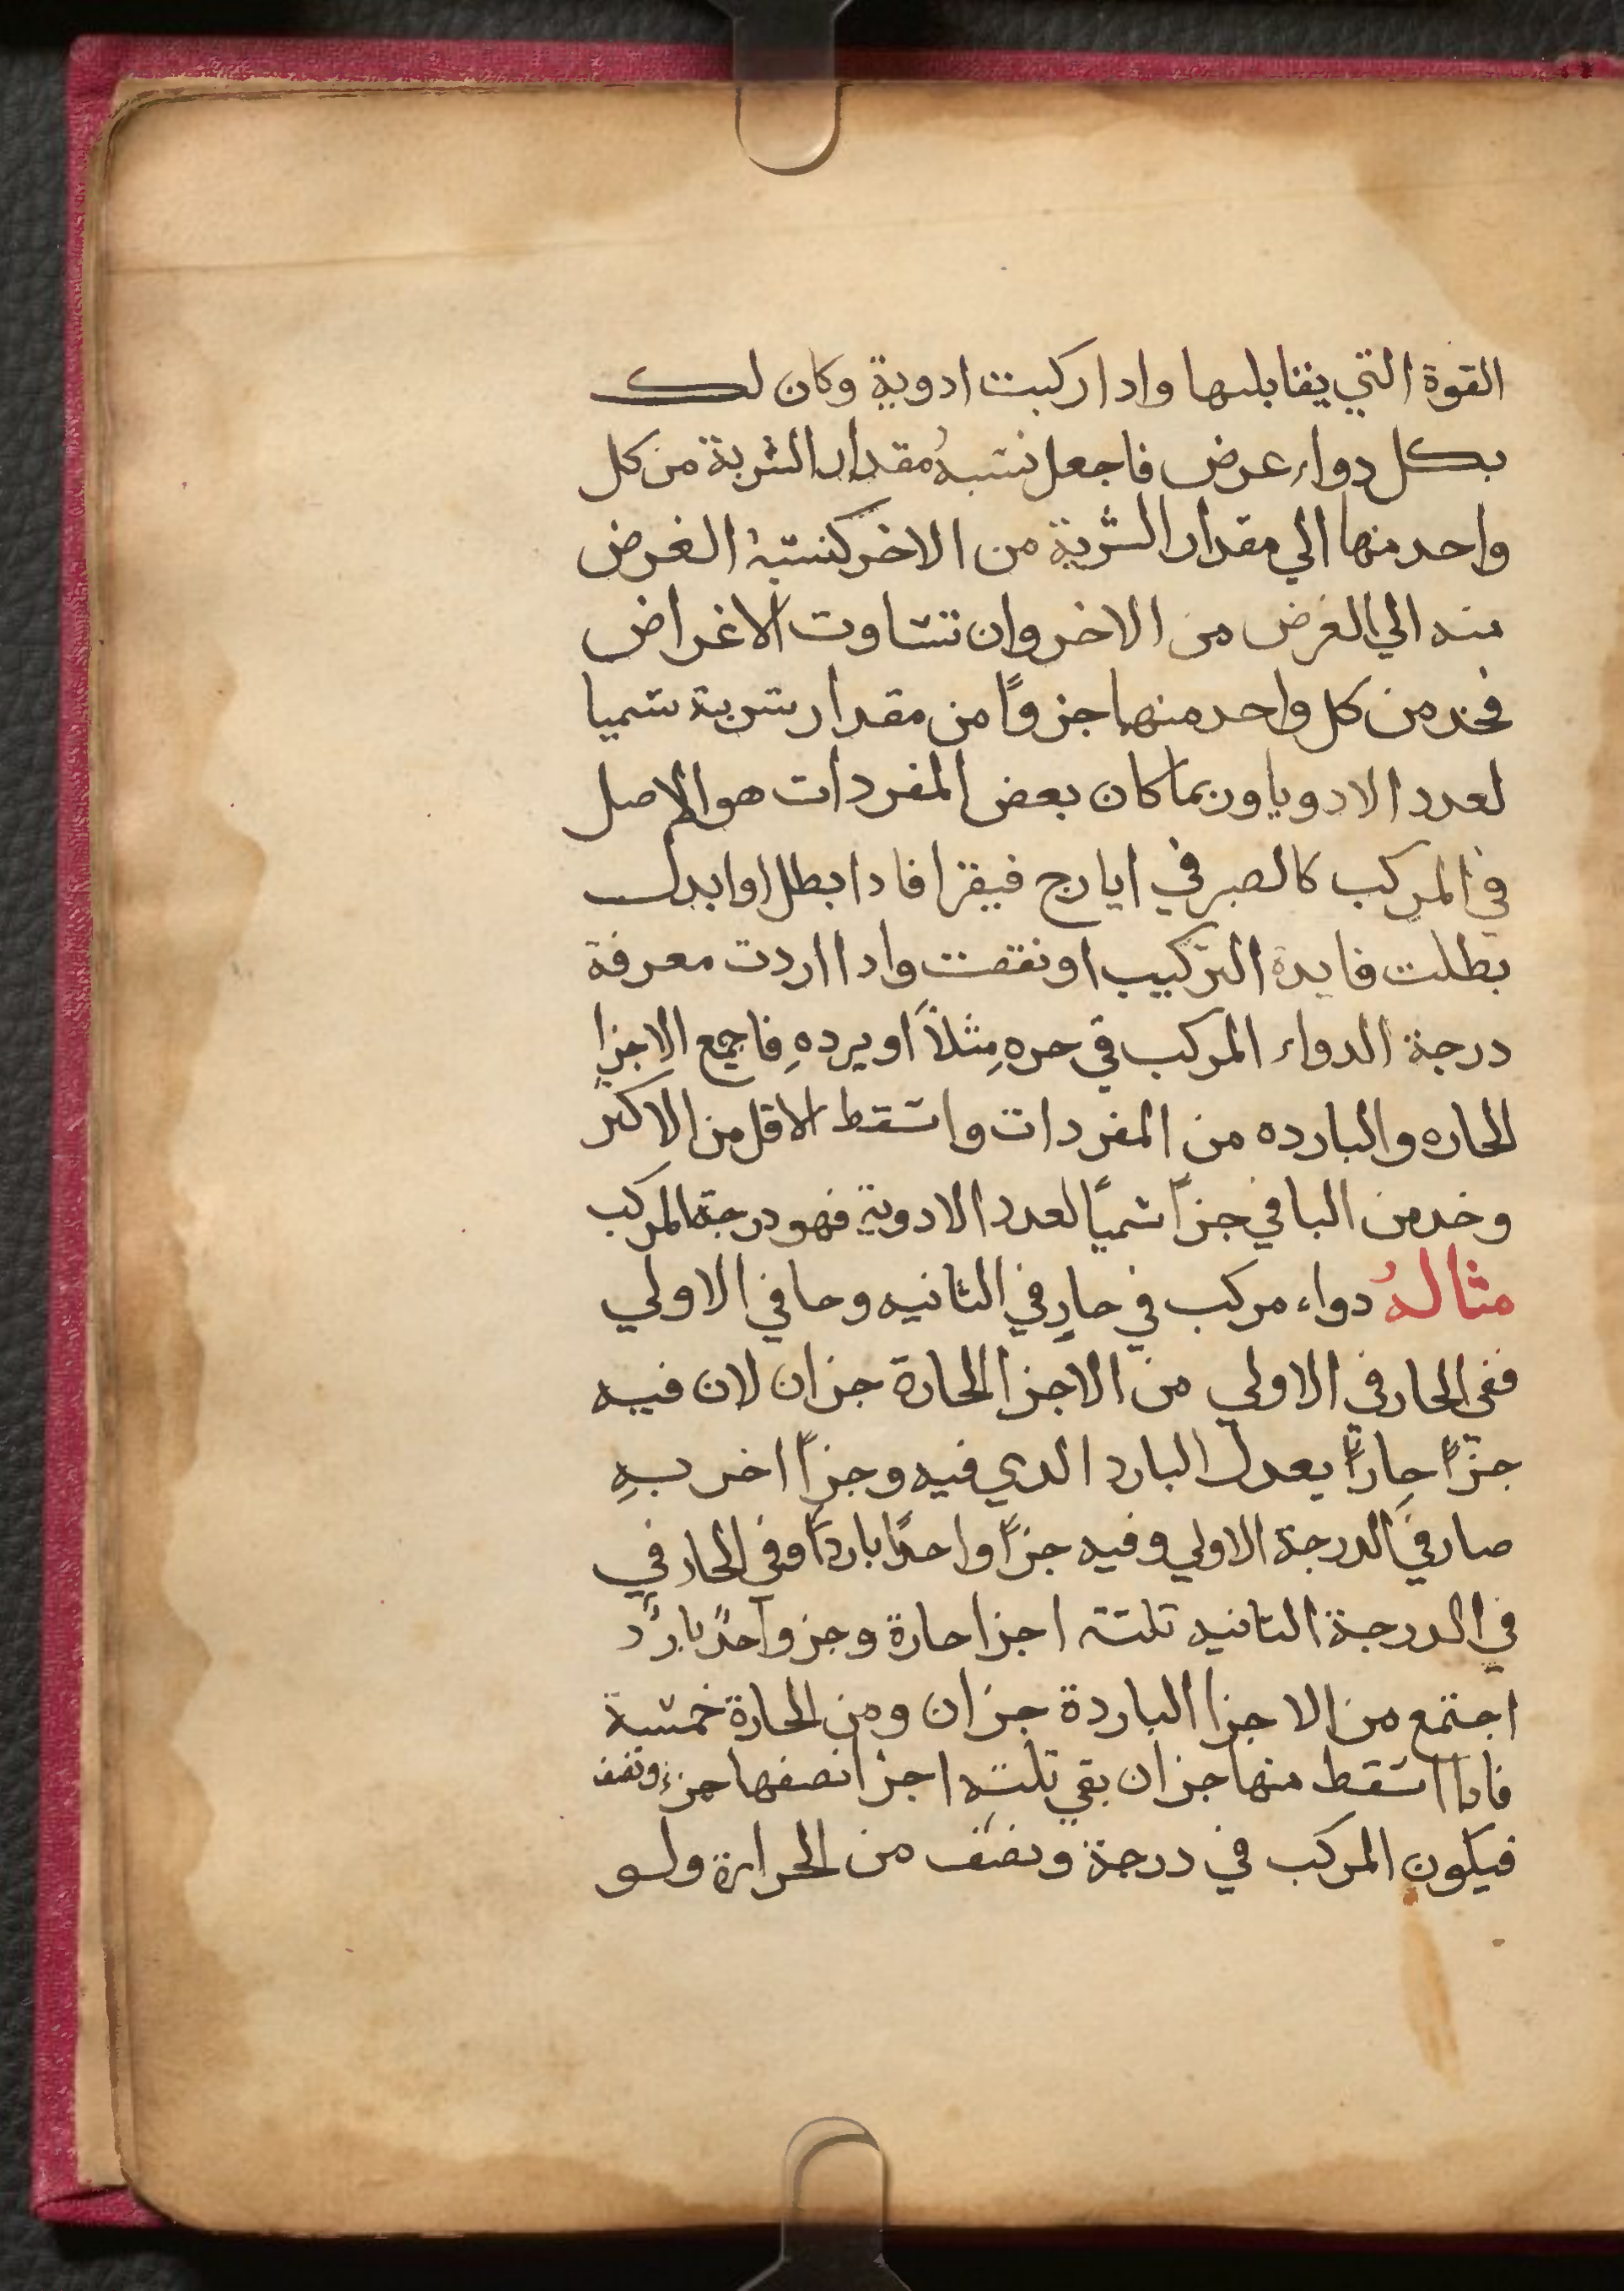 القوة التي يقابلها وادا ركبت ادوية وكان لك
بكل دواء عرض فاجعل نسبةُ مقدار الشربة من كل
واحد منها الي مقدار الشربة من الاخر كنسبة الغرض
منه الي الغرض من الاخر وان تساوت الاغراض
فخد من كل واحد منها جزوًا من مقدار شربة سميا
لعدد الادويا وربما كان بعض المفردات هو الاصل
في المركب كالصبر في ايارج فيقرا فادا بطل او ابدل
بطلت فايدة التركيب او نقصت وادا اردت معرفة
درجة الدواء المركب في حرهِ مثلاً او بردهِ فاجمع الاجزا
الحاره والبارده من المفردات واسقط الاقل من الاكثر
وخد من الباقي جزاً سميًا لعدد الادوية فهو درجة المركب
مثالهُ دواء مركب في حارٍ في الثانيه وحا في الاولي
ففي الحار في الاولي من الاجزا الحارة جزان لان فيه
جزًا حارًا يعدل البارد الدي فيه وجزاً اخر بهِ
صار في الدرجة الاولي وفيه جزاً واحدًا باردًا وفي الحار في
في الدرجة الثانيه تلتة اجزا حارة وجزوا حدًا باردٌ
اجتمع من الاجزا الباردة جزان ومن الحارة خمسة
فادا اسقط منها جزان بقي تلته اجزا نصفها جزء ونصف
فيكون المركب في درجة ونصف من الحرارة ولو